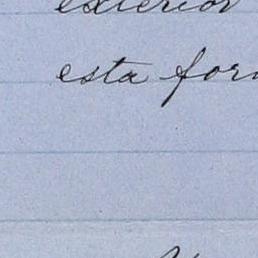 exterior
esta for